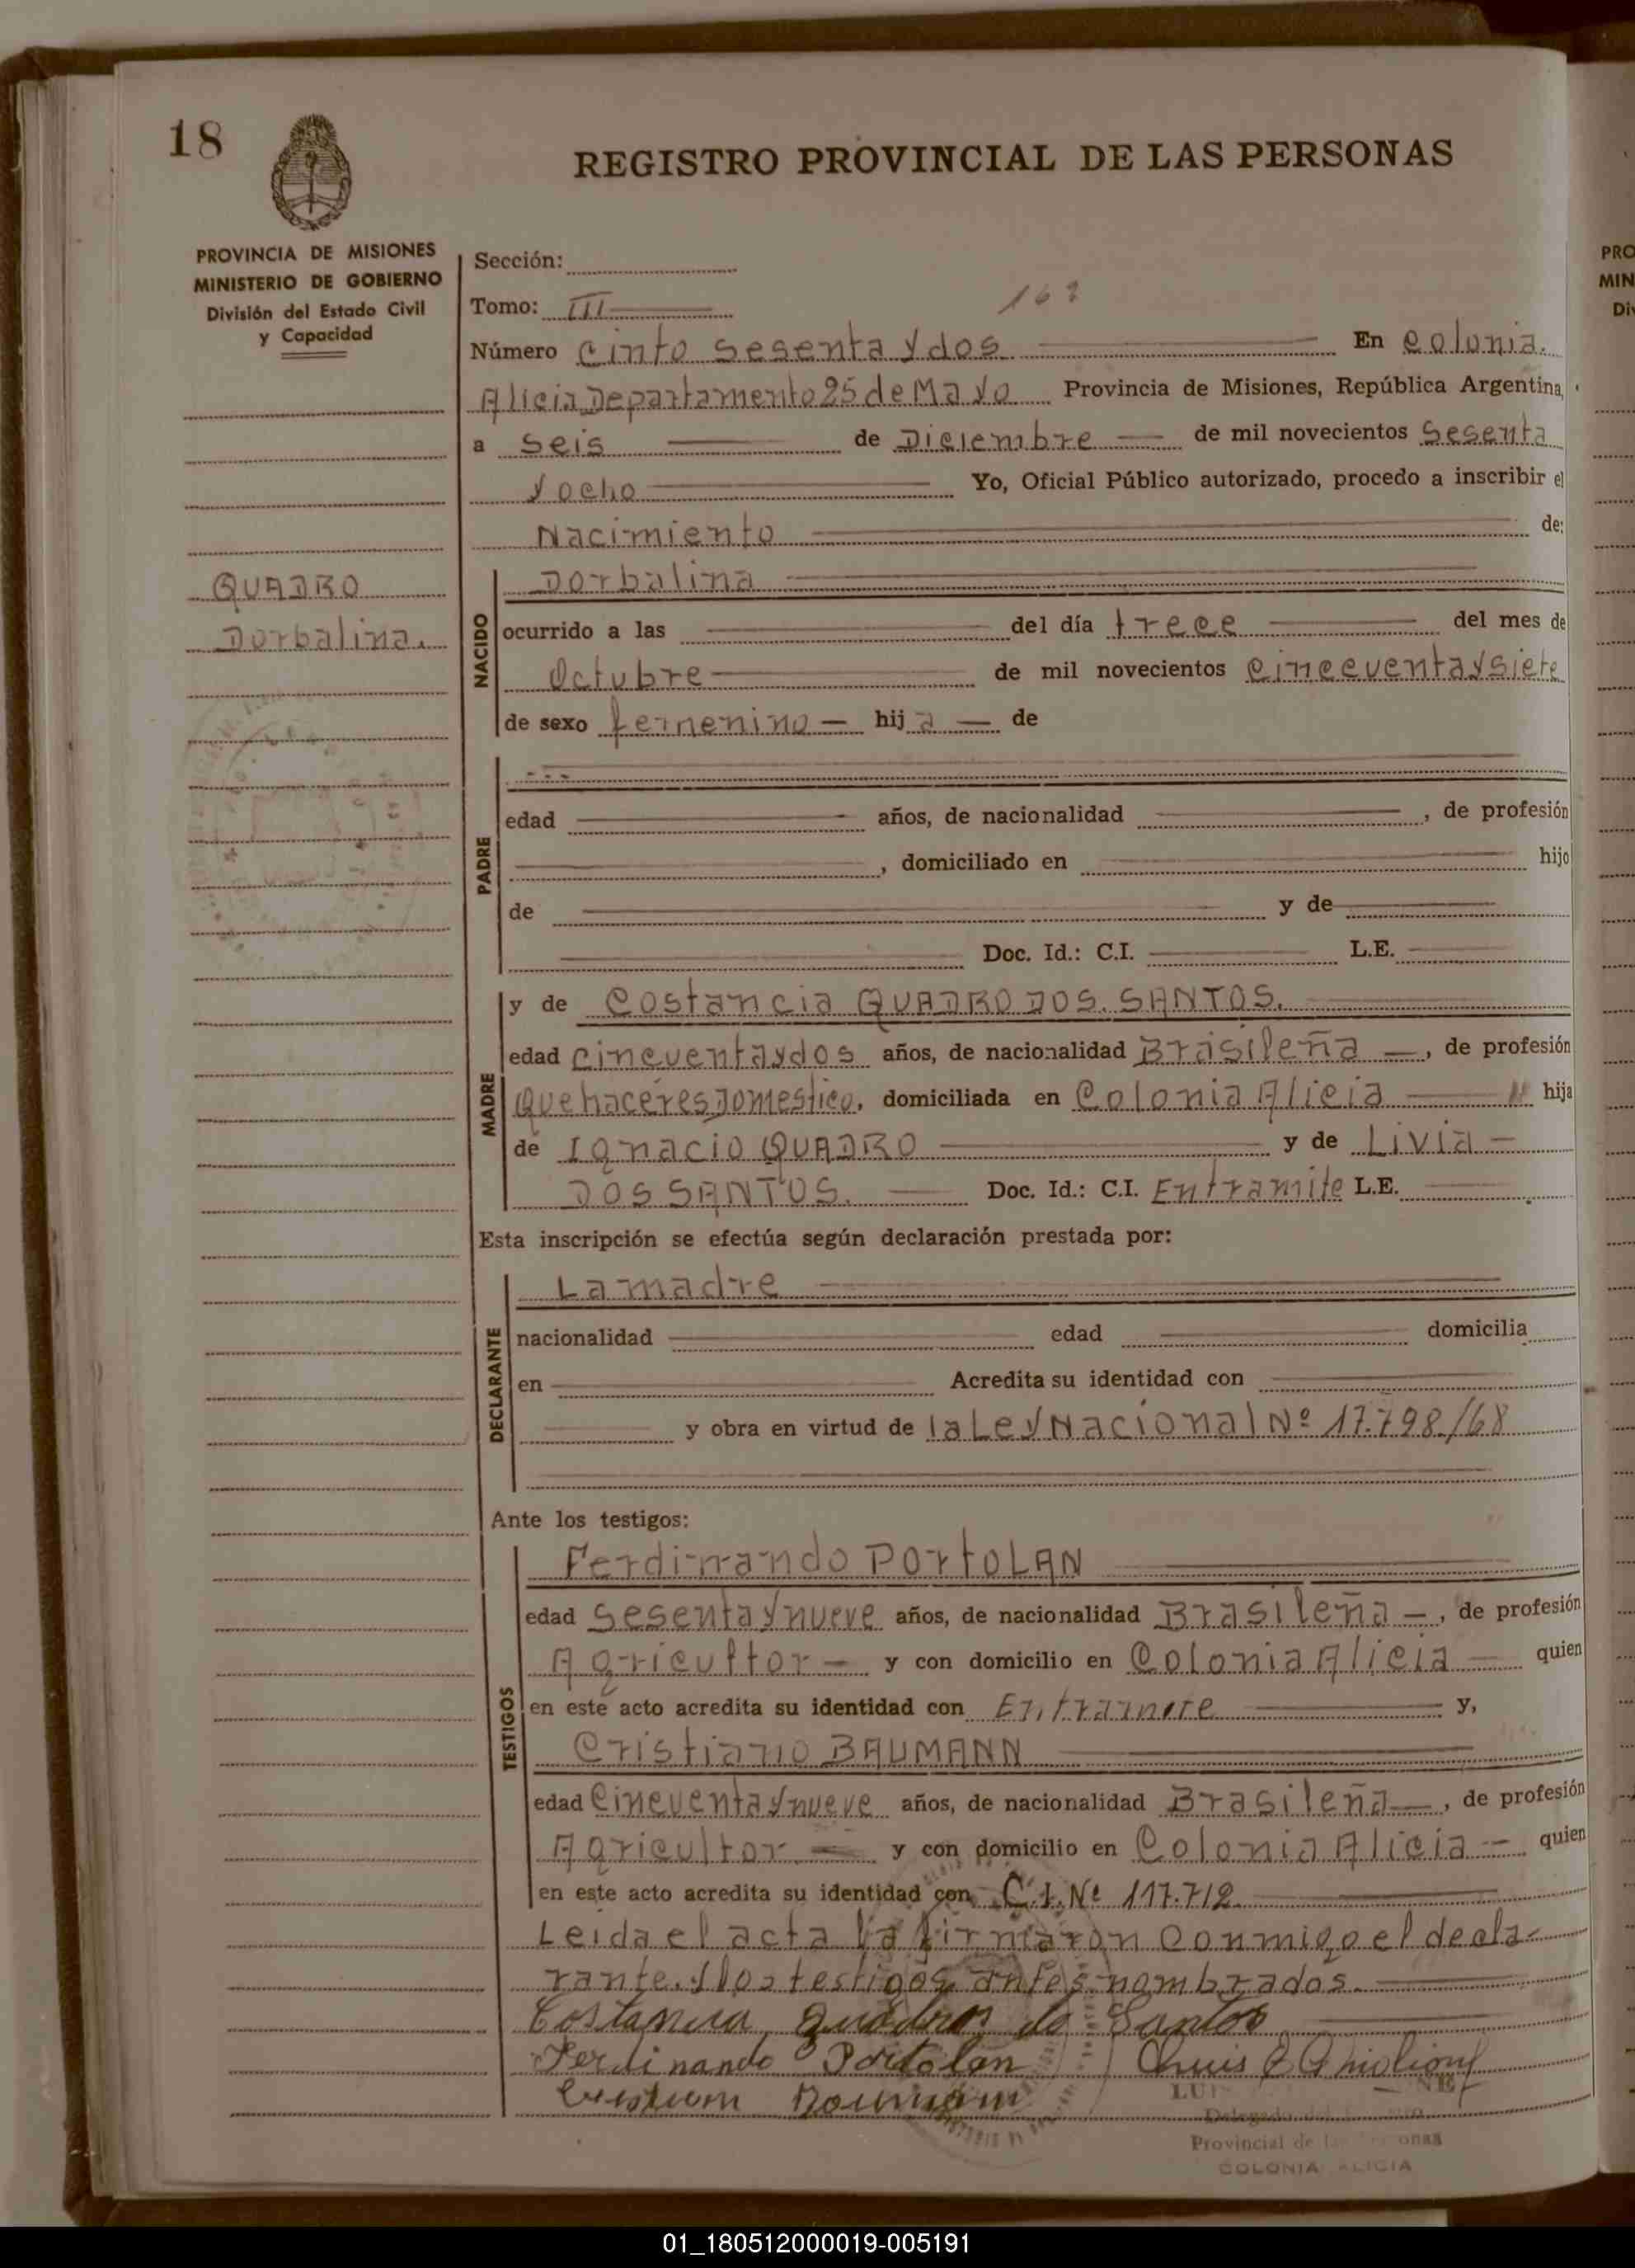 18
REGISTRO PROVINCIAL DE LAS PERSONAS
PROVINCIA DE MISIONES
MINISTERIO DE GOBIERNO
División del Estado Civil
y Capacidad
QUADRO
Dorbalina.
Sección:
Tomo: III
162
Número Cinto sesenta y dos En Colonia.
Alicia Departamento 25 de Mayo Provincia de Misiones, República Argentina,
a seis de Diciembre de mil novecientos Sesenta
y ocho Yo, Oficial Público autorizado, procedo a inscribir el
Nacimiento de:
NACIDO
Dorbalina
ocurrido a las del día trece del mes de
Octubre de mil novecientos cinccuenta y siete
de sexo femenino hij a de
PADRE
edad años, de nacionalidad , de profesión
, domiciliado en hijo
de y de
Doc. Id.: C.I. L.E.
MADRE
y de Costancia QUADRO DOS. SANTOS.
edad cincuenta y dos años, de nacionalidad Brasileña , de profesión
Quehaceres Domestico, domiciliada en Colonia Alicia hija
de Ignacio QUADRO y de Livia
DOS SANTOS. Doc. Id.: C.I. En tramite L.E.
Esta inscripción se efectúa según declaración prestada por:
DECLARANTE
La madre
nacionalidad edad domicilia
en Acredita su identidad con
y obra en virtud de la Ley Nacional Nº 17.798/68
Ante los testigos:
TESTIGOS
Ferdinando PORTOLAN
edad Sesenta y nueve años, de nacionalidad Brasileña , de profesión
Agricultor y con domicilio en Colonia Alicia quien
en este acto acredita su identidad con En tramite y,
Cristiano BAUMANN
edad Cincuenta y nueve años, de nacionalidad Brasileña , de profesión
Agricultor y con domicilio en Colonia Alicia quien
en este acto acredita su identidad con C.I. Nº 117.712
Leida el acta la firmaron conmigo el decla-
rante. y los testigos antes nombrados.
Costancia Quadros do Santos
Ferdinando Portolan
Provincial de las Personas
COLONIA ALICIA
PRO
MIN
Di
01_180512000019-005191